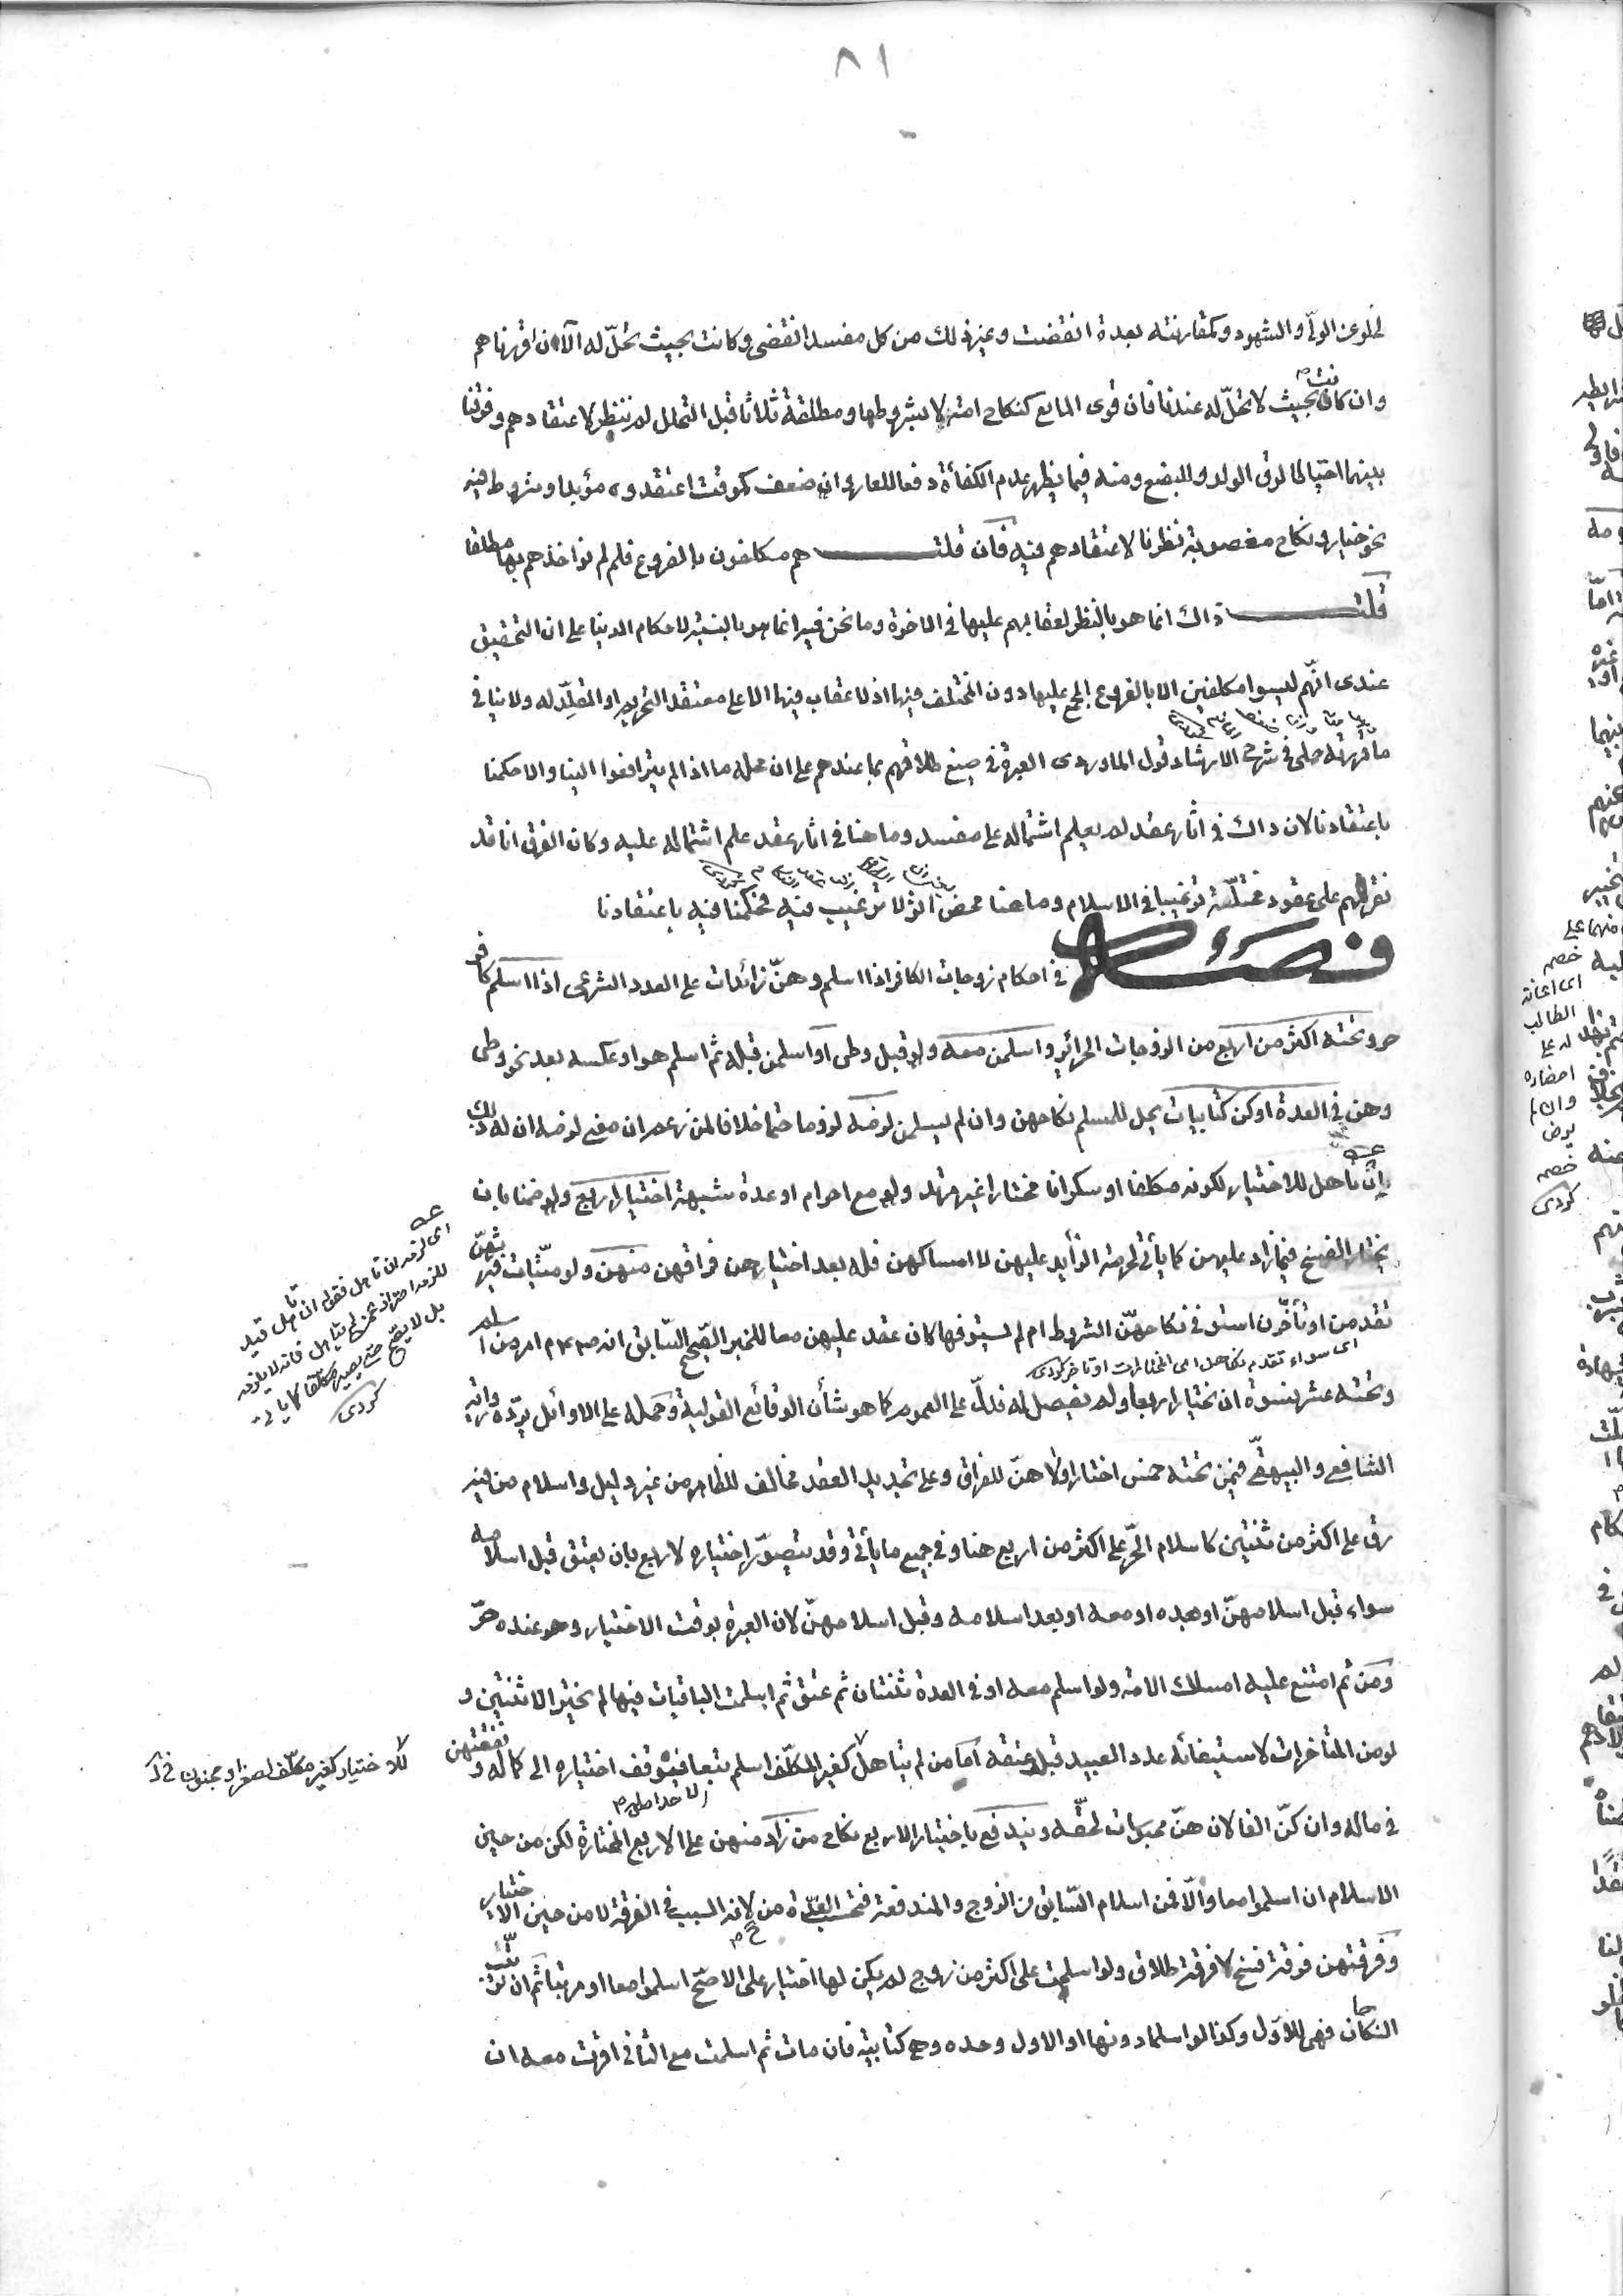 ٨١
لخلو عن الولي والشهود وكمقارنته لعدة انقضت وغير ذلك من كل مفسد انقضى وكانت بحيث تحلّ له الآن اقررناهم
وان كانت بحيث لا تحلّ له عندنا فان قوى المانع كنكاح امة بلا شروطها ومطلقة ثلاثا قبل التحلل لم ننظر لاعتقادهم وفرقنا
بينهما احتياطا لرق الولد وللبضع ومنه فيما يظهر عدم الكفأة دفعا للعار وان ضعف كموقت اعتقدوه مؤبدا وشروط فيه
نحو خيار ونكاح مغصوبة نظرنا لاعتقادهم فيه فان قلت هم مكلفون بالفروع فلم لم نواخذهم بها مطلقا
قلت ذاك انما هو بالنظر لعقابهم عليها في الاخرة وما نحن فيه انما هو بالنسبة لاحكام الدنيا على ان التحقيق
عندى انّهم ليسوا مكلفين الا بالفروع المجمع عليها دون المختلف فيها اذ لا عقاب فيها الا على معتقد التحريم او المقلّد له ولا ينافى
ما قررته حملى في شرح الارشاد قول الماوردى العبرة في صيغ طلاقهم بما عندهم على ان محله ما اذا لم يترافعوا الينا والا حكمنا
باعتقادنا لان ذاك في اثار عقد لم يعلم اشتماله على مفسد وما هنا في اثار عقد علم اشتماله عليه وكان الفرق انا قد
نقرهم على عقود مختلّة ترغيبا في الاسلام وما هنا محض اثر لا ترغيب فيه فحكمنا فيه باعتقادنا
فصل في احكام زوجات الكافر اذا اسلم وهنّ زائدات على العدد الشرعى اذا اسلم كافر
حر وتحته اكثر من اربع من الزوجات الحرائر واسلمن معه ولو قبل وطى او اسلمن قبله ثم اسلم هو او عكسه بعد نحو وطى
وهن في العدة او كن كتابيات يحل للمسلم نكاحهن وان لم يسلمن لزمه لزوما حتما خلافا لمن زعم ان معنى لزمه ان له ذلك
ان تاهل للاختيار لكونه مكلفا او سكرانا مختارا غير مرتد ولو مع احرام او عدة شبهة اختيار اربع ولو ضمنا بان
يختار الفسخ فيما زاد عليهن كما يأتي لحرمة الزأيد عليهن لا امساكهن فله بعد اختيارهن فراقهن منهن ولو ميّتات فيرثهنّ
تقدمن او تأخّرن استوفى نكاحهنّ الشروط ام لم يستوفها كان عقد عليهن معا للخبر الصّحيح السّابق انه ص م امر من اسلم
اى سواء تقدم نكاحهن اى المختارات او تاخر كردى
وتحته عشر نسوة ان يختار اربعا ولم يفصل له فدلّ على العموم كما هو شأن الوقائع القولية وحمله على الاوائل يردّه رواية
الشافعي والبيهقيّ فيمن تحته خمس اختار اولاهنّ للفراق وعلى تجديد العقد مخالف للظاهر من غير دليل واسلام من فيه
رق على اكثر من ثنتين كاسلام الحرّ على اكثر من اربع هنا وفي جميع ما يأتي وقد يتصوّر اختياره لاربع بان يعتق قبل اسلامه
سواء قبل اسلامهنّ او بعده او معه او بعد اسلامه وقبل اسلامهنّ لان العبرة بوقت الاختيار وهو عنده حرّ
ومن ثم امتنع عليه امساك الامة ولو اسلم معه او في العدة ثنتان ثم عتق ثم اسلمت الباقيات فيها لم يختر الا ثنتين و
لو من المتأخرات لاستيفائه عدد العبيد قبل عتقه اما من لم يتاهل كغير المكلّف اسلم تبعا فيوقف اختياره الى كماله ونفقتهن
في ماله وان كنّ الفا لان هنّ محبوسات لحقّه ويندفع باختيار الاربع نكاح من زاد منهن على الاربع المختارة لكن من حين
الاسلام ان اسلموا معا والّا فمن اسلام السّابق من الزوج والمندفعة فتحسب العدّة من ح لانه السبب في الفرقة لا من حين الاختيار
وفرقتهن فرقة فسخ لا فرقة طلاق ولو اسلمت على اكثر من زوج لم يكن لها اختيار على الاصحّ اسلموا معا او مرتبا ثم ان ترتّب
النكاحان فهى للاوّل وكذا لو اسلما دونها او الاول وحده وهى كتابية فان مات ثم اسلمت مع الثانى اقرت معه ان
اى لزمه ان تاهل فقوله ان تاهل قيد
للزم احترازا عمن لم يتاهل فانه لا يلزمه
بل لا يصح حتى يصير مكلفا كما ياتى
كردى
للاختيار كغير مكلّف لصغر او جنون